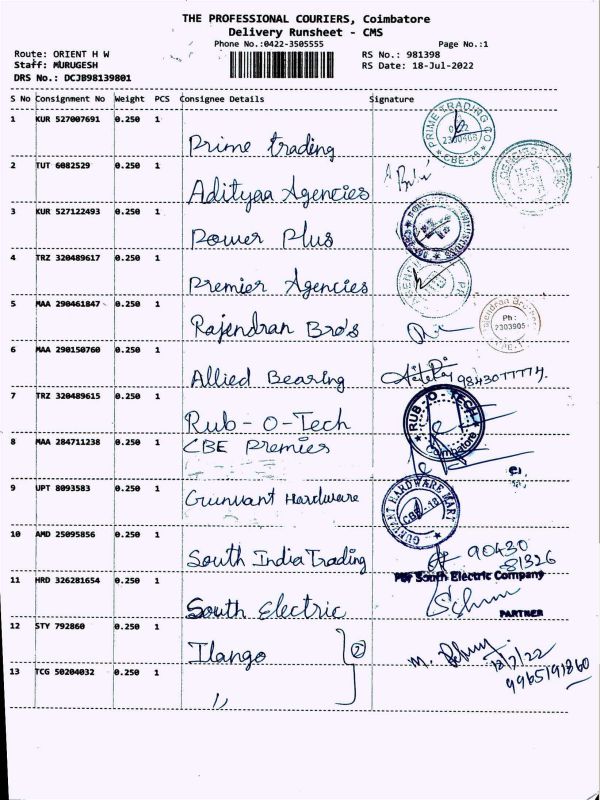 THE PROFESSIONAL COURIERS, Coimbatore
Delivery Runsheet - CMS
Phone No.:0422-3505555 Page No.:1
Route: ORIENT H W RS No.: 981398
Staff: MURUGESH RS Date: 18-Jul-2022
DRS No.: DCJB98139801
S No Consignment No Weight PCS Consignee Details Signature
1 KUR 527007691 0.250 1 Prime Trading
PRIME TRADING CO
2300406
CBE-18
2 TUT 6082529 0.250 1 Adityaa Agencies
3 KUR 527122493 0.250 1 Power Plus
4 TRZ 320489617 0.250 1 Premier Agencies
5 MAA 290461847 0.250 1 Rajendran Bro's
Rajendran Bro
Ph:
2303905
6 MAA 290150760 0.250 1 Allied Bearing 9843077774.
7 TRZ 320489615 0.250 1 Rub-O-Tech
RUB-O-TECH
Coimbatore
8 MAA 284711238 0.250 1 CBE Premies
9 UPT 8093583 0.250 1 Gunvant Hardware
GUNVANT HARDWARE MART
CBE-18
10 AMD 25095856 0.250 1 South India Trading 90430
81326
11 HRD 326281654 0.250 1 South Electric
For South Electric Company
PARTNER
12 STY 792860 0.250 1 Ilango 2
18/7/22
9965191860
13 TCG 50204032 0.250 1 "